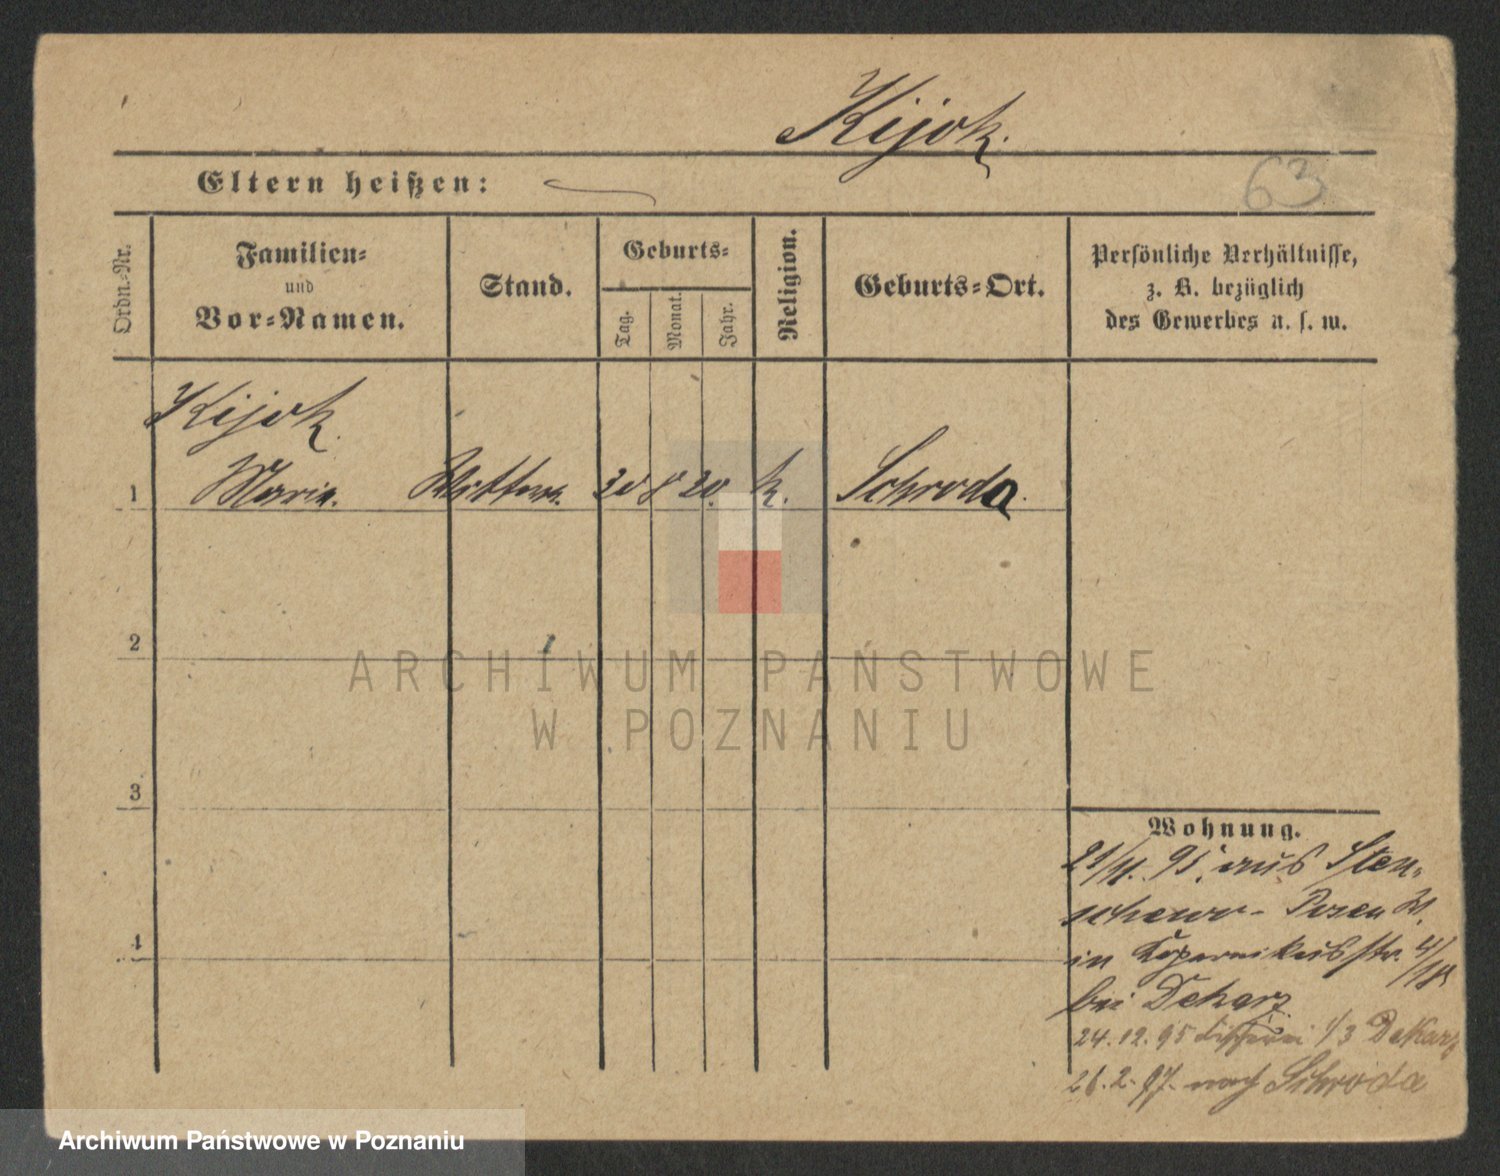 Kijok.
Eltern heißen:
63
Ordn.-Nr.
Familien-
und
Vor-Namen.
Stand.
Geburts-
Tag.
Monat.
Jahr.
Religion.
Geburts-Ort.
Persönliche Verhältnisse,
z. B. bezüglich
des Gewerbes u. s. w.
Kijok.
1 Maria. 20 8 20. k. Schroda.
2
3
4
ARCHIWUM PAŃSTWOWE
W POZNANIU
Wohnung.
21/11. 95. aus Sten-
schewo - Posen W.
in Kopernikusstr. 4/
bei Dekarz
24.12.95 Fischerei 1/3 Dekarz
26.2.97. nach Schroda
Archiwum Państwowe w Poznaniu